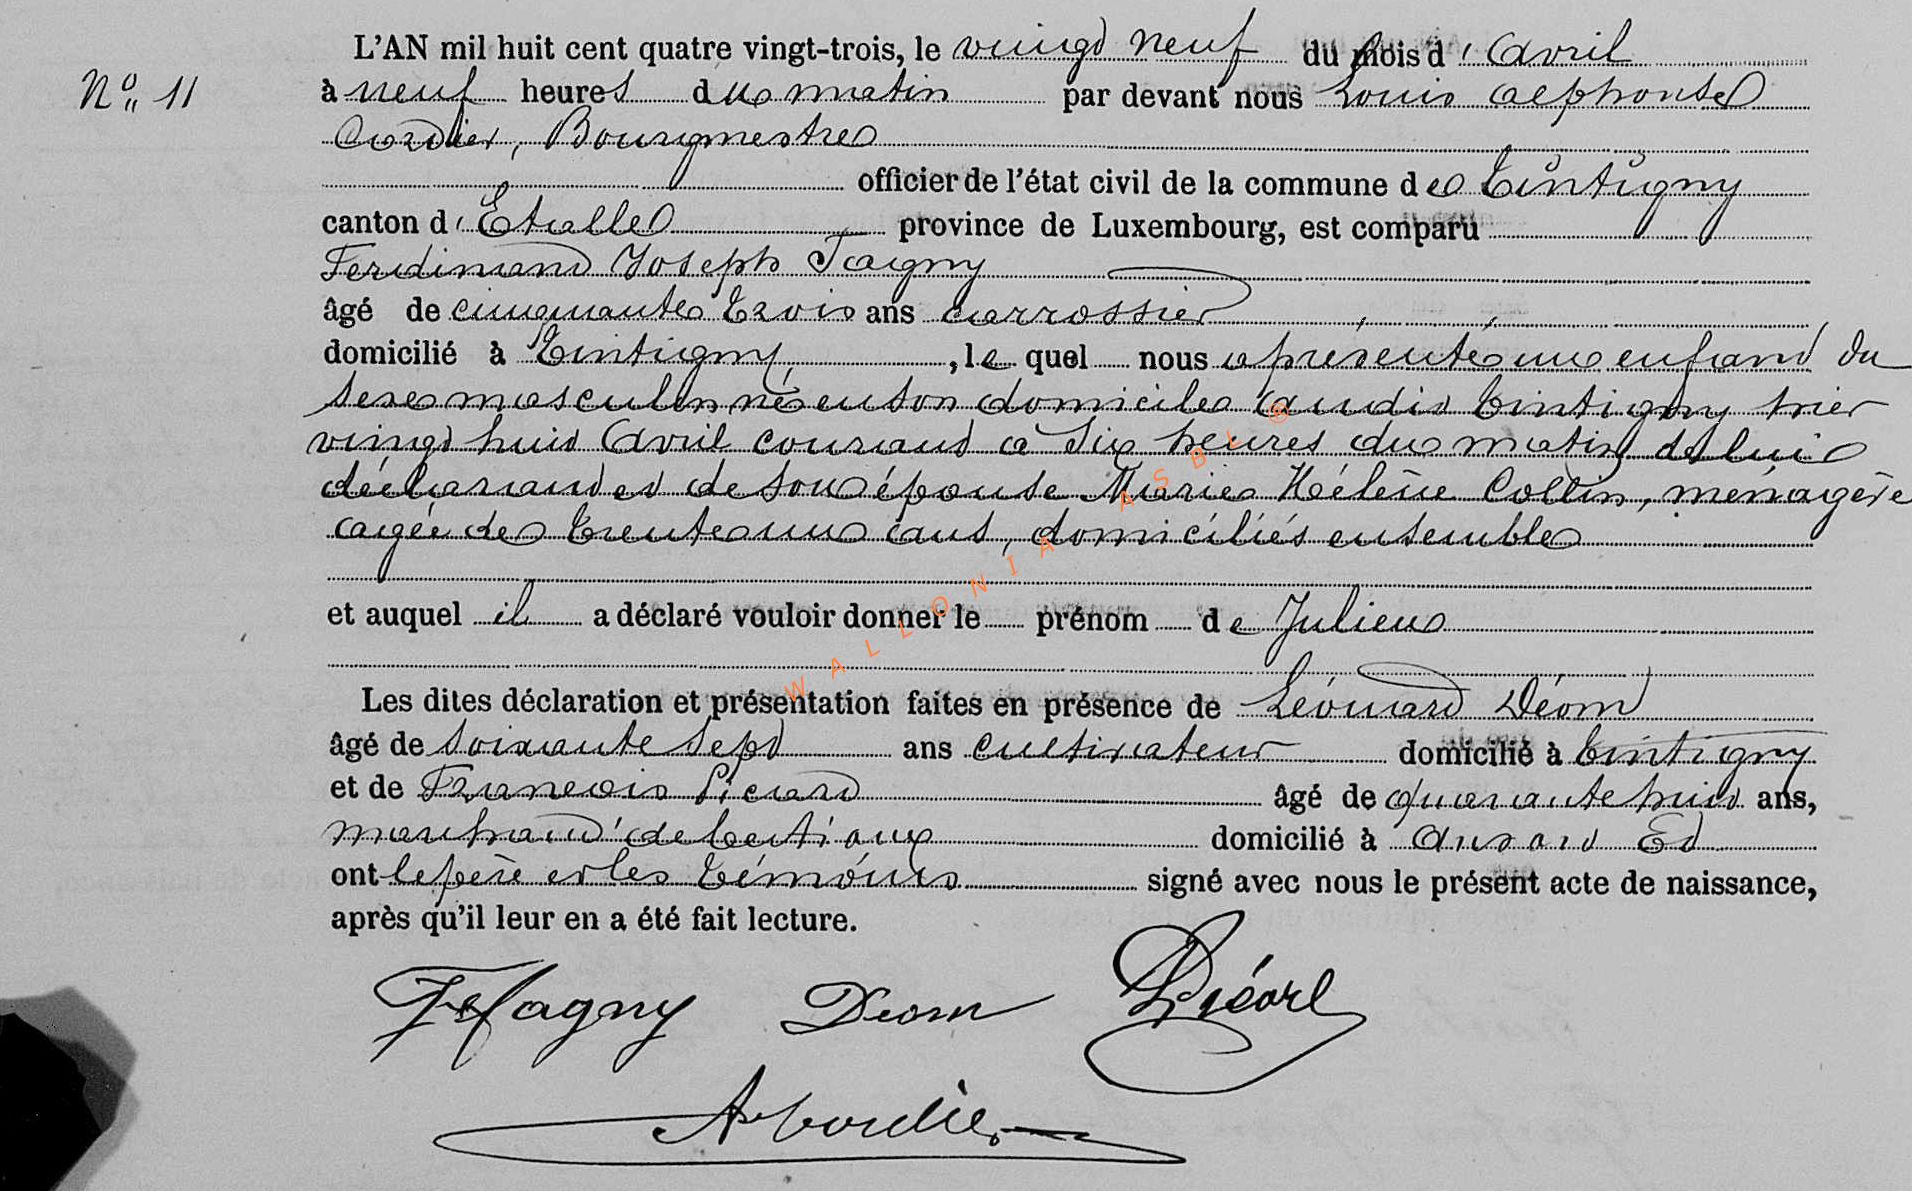 L'AN mil huit cent quatre vingt-trois, le vingt neuf du mois d' Avril
N° 11
à neuf heures du matin par devant nous Louis Alphonse
Cordier, Bourgmestre
officier de l'état civil de la commune de Tintigny
canton d' Etalle province de Luxembourg, est comparu
Ferdinand Joseph Tagny
âgé de cinquante trois ans carrossier
domicilié à Tintigny, lequel nous a présenté un enfant du
sexe masculin né en son domicile audit Tintigny hier
vingt huit Avril courant à six heures du matin de lui
déclarant et de son épouse Marie Hélène Collin, ménagère
agée de trente un ans, domiciliés ensemble
et auquel il a déclaré vouloir donner le prénom de Julien
Les dites déclaration et présentation faites en présence de Léonard Déom
âgé de soixante sept ans cultivateur domicilié à Tintigny
et de Francois Picard âgé de quarante huit ans,
marchand de bestiaux domicilié à Ansart Et
ont le père et les témoins signé avec nous le présent acte de naissance,
après qu'il leur en a été fait lecture.
Tagny Deom
A Cordier
WALLONIA ASBL ®